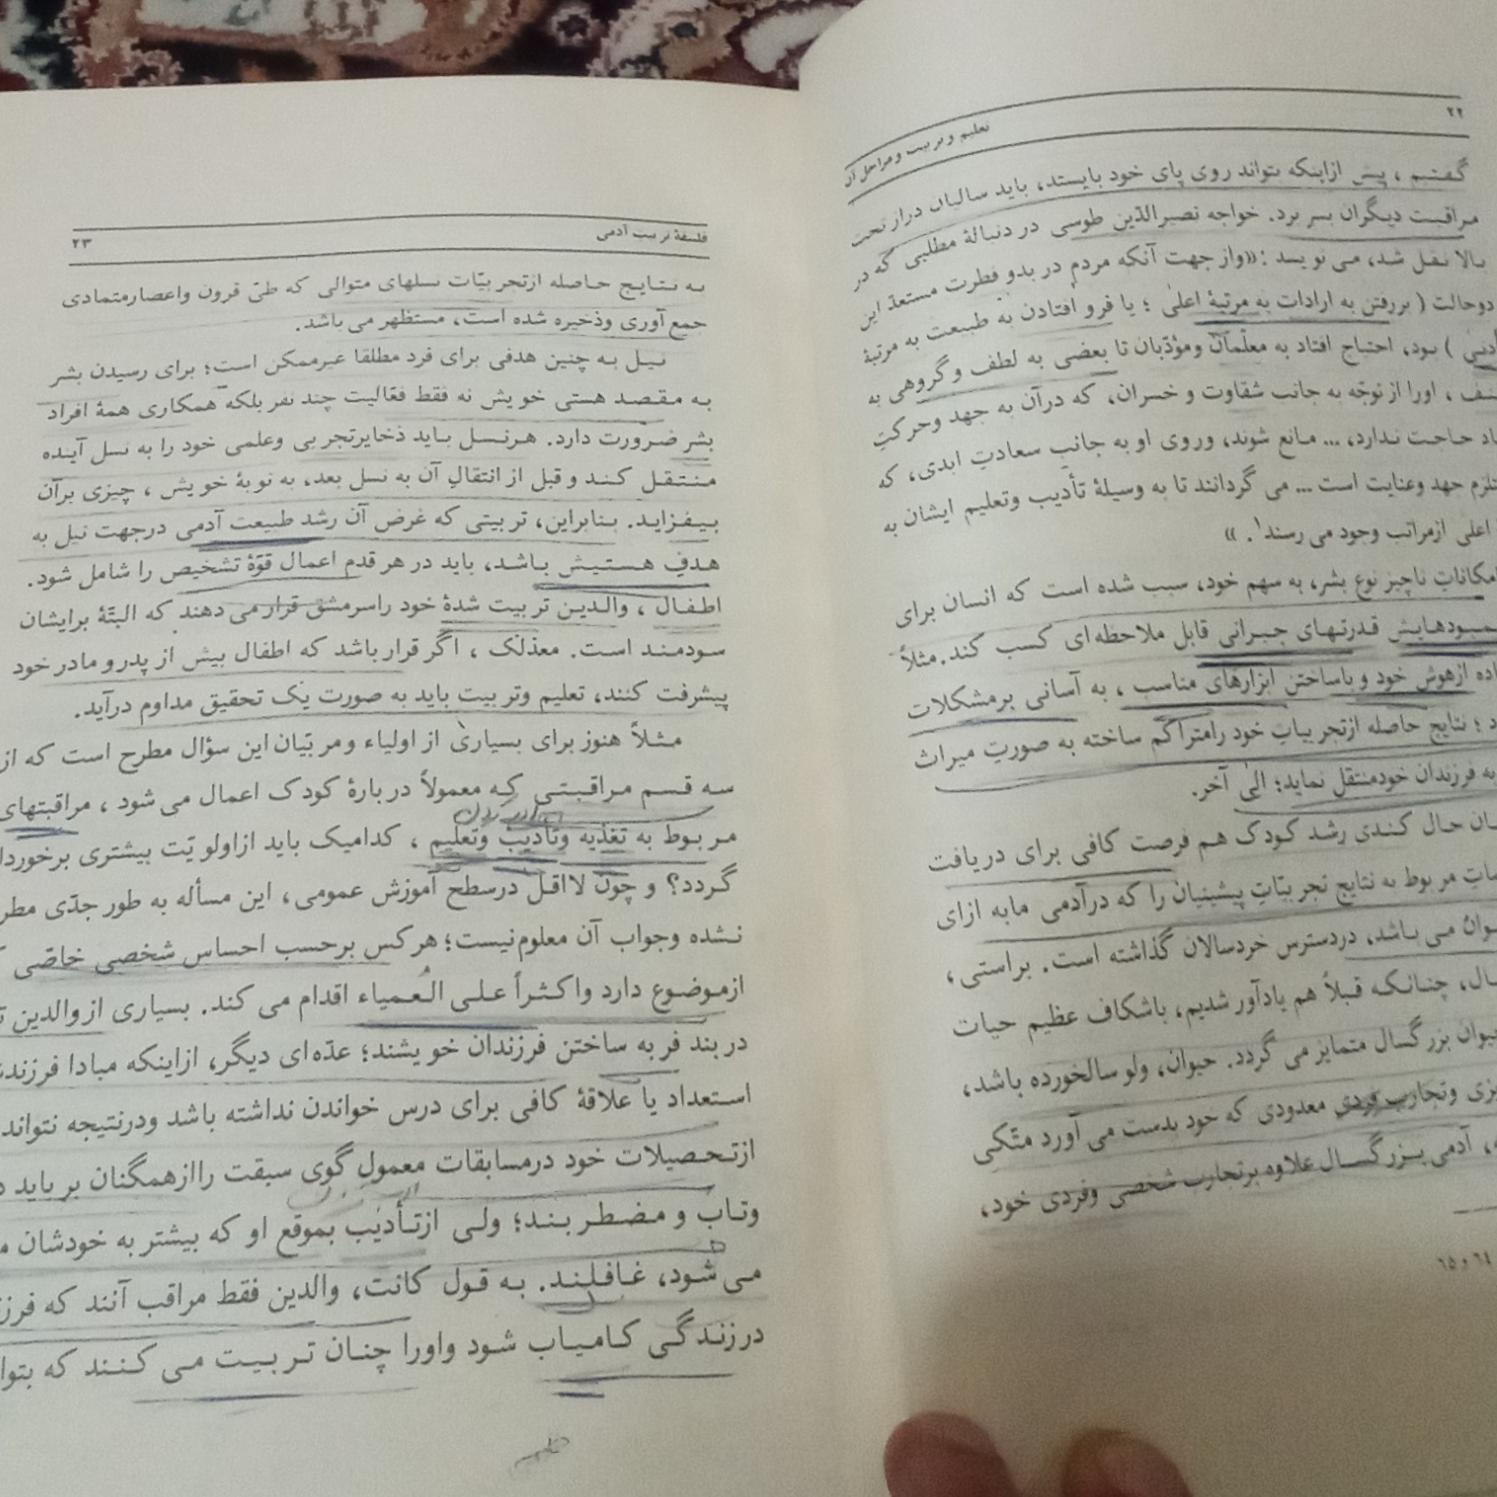 ۲۲
تعلیم و تربیت و مراحل آن
گفتیم، پیش ازاینکه بتواند روی پای خود بایستد، باید سالیان دراز تحت
مراقبت دیگران بسر برد. خواجه نصیرالدّین طوسی در دنبالهٔ مطلبی که در
بالا نقل شد، می نویسد: «واز جهت آنکه مردم در بدو فطرت مستعدّ این
دوحالت ( بررفتن به ارادات به مرتبهٔ اعلیٰ ؛ یا فرو افتادن به طبیعت به مرتبهٔ
أدنیٰ ) بود، احتیاج افتاد به معلّمان ومؤدّبان تا بعضی به لطف و گروهی به
، اورا از توجّه به جانب شقاوت و خسران، که درآن به جهد وحرکتِ
حاجت ندارد، ... مانع شوند، وروی او به جانب سعادتِ ابدی، که
جهد وعنایت است ... می گردانند تا به وسیلهٔ تأدیب وتعلیم ایشان به
اعلی ازمراتب وجود می رسند۱. »
امکاناتِ ناچیز نوع بشر، به سهم خود، سبب شده است که انسان برای
قدرتهای جبرانی قابل ملاحظه ای کسب کند. مثلاً
ازهوش خود و باساختن ابزارهای مناسب، به آسانی برمشکلات
؛ نتایج حاصله ازتجربیاتِ خود رامتراکم ساخته به صورتِ میراث
به فرزندان خودمنتقل نماید؛ الیٰ آخر.
حال کندی رشد کودک هم فرصت کافی برای دریافت
مربوط به نتایج تجربیّاتِ پیشینیان را که درآدمی مابه ازای
می باشد، دردسترس خردسالان گذاشته است. براستی،
چنانکه قبلاً هم یادآور شدیم، باشکاف عظیم حیات
بزرگسال متمایز می گردد. حیوان، ولو سالخورده باشد،
وتجارب فردی معدودی که خود بدست می آورد متّکی
آدمی بزرگسال علاوه برتجارب شخصی وفردی خود،
٦٤ و ٦٥
فلسفهٔ تربیت آدمی
۲۳
به نتایج حاصله ازتجربیّات نسلهای متوالی که طیّ قرون واعصارمتمادی
جمع آوری وذخیره شده است، مستظهر می باشد.
نیل به چنین هدفی برای فرد مطلقا غیرممکن است؛ برای رسیدن بشر
به مقصد هستی خویش نه فقط فعّالیت چند نفر بلکه همکاری همهٔ افراد
بشر ضرورت دارد. هرنسل باید ذخایرتجربی وعلمی خود را به نسل آینده
منتقل کند و قبل از انتقالِ آن به نسل بعد، به نوبهٔ خویش، چیزی برآن
بیفزاید. بنابراین، تربیتی که غرض آن رشد طبیعت آدمی درجهت نیل به
هدفِ هستیش باشد، باید در هر قدم اعمال قوّهٔ تشخیص را شامل شود.
اطفال، والدین تربیت شدهٔ خود راسرمشق قرارمی دهند که البتّهٔ برایشان
سودمند است. معذلک، اگر قرار باشد که اطفال بیش از پدر و مادر خود
پیشرفت کنند، تعلیم وتربیت باید به صورت یک تحقیق مداوم درآید.
مثلاً هنوز برای بسیاری از اولیاء و مربّیان این سؤال مطرح است که از
سه قسم مراقبتی که معمولاً دربارهٔ کودک اعمال می شود، مراقبتهای
مربوط به تغذیه وتأدیب وتعلیم، کدامیک باید ازاولویّت بیشتری برخوردار
گردد؟ و چون لااقل درسطح آموزش عمومی، این مسأله به طور جدّی
نشده وجواب آن معلوم نیست؛ هر کس برحسب احساس شخصی خاصّی
ازموضوع دارد واکثراً علی العُمیاء اقدام می کند. بسیاری از والدین
دربند فربه ساختن فرزندان خویشند؛ عدّه ای دیگر، ازاینکه مبادا
استعداد یا علاقهٔ کافی برای درس خواندن نداشته باشد ودرنتیجه نتواند
ازتحصیلات خود درمسابقات معمول گوی سبقت راازهمگنان بر باید
وتاب و مضطربند؛ ولی ازتأدیب بموقع او که بیشتر به خودشان
می شود، غافلند. به قول کانت، والدین فقط مراقب آنند که
درزندگی کامیاب شود واورا چنان تربیت می کنند که